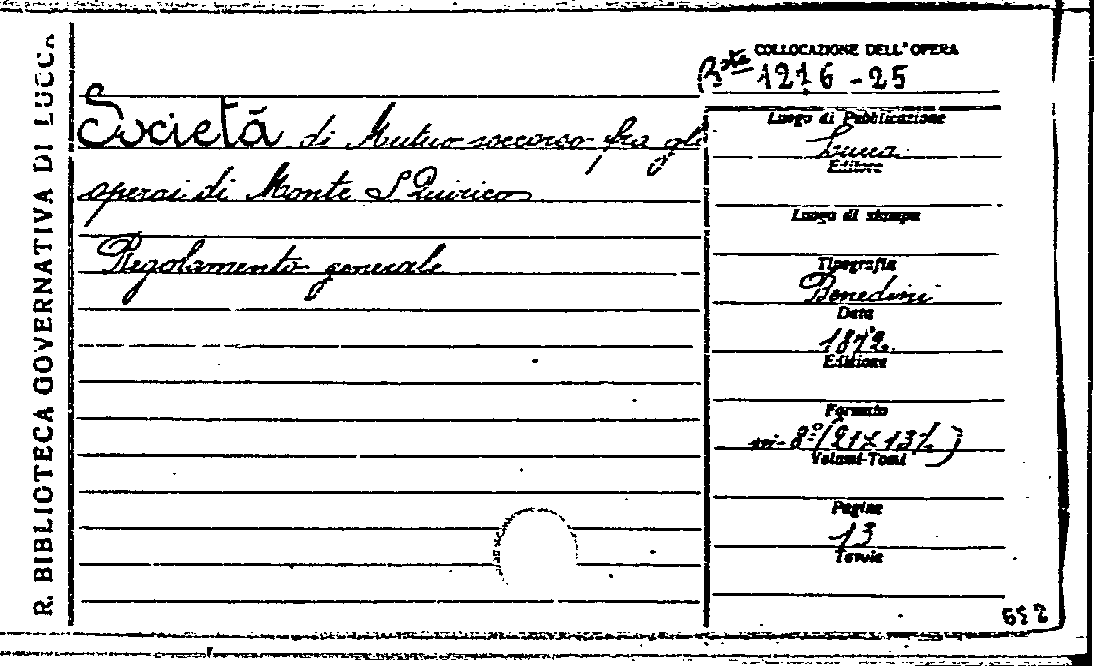 R. BIBLIOTECA GOVERNATIVA DI LUCCA
COLLOCAZIONE DELL'OPERA
Bta 1216-25
Società di Mutuo soccorso fra gli
operai di Monte S Quirico
Regolamento generale
Luogo di Pubblicazione
Lucca
Editore
Luogo di stampa
Tipografia
Benedini
Data
1872.
Edizione
Formato
in-8º (21 x 13½)
Volumi-Tomi
Pagine
13
Tavole